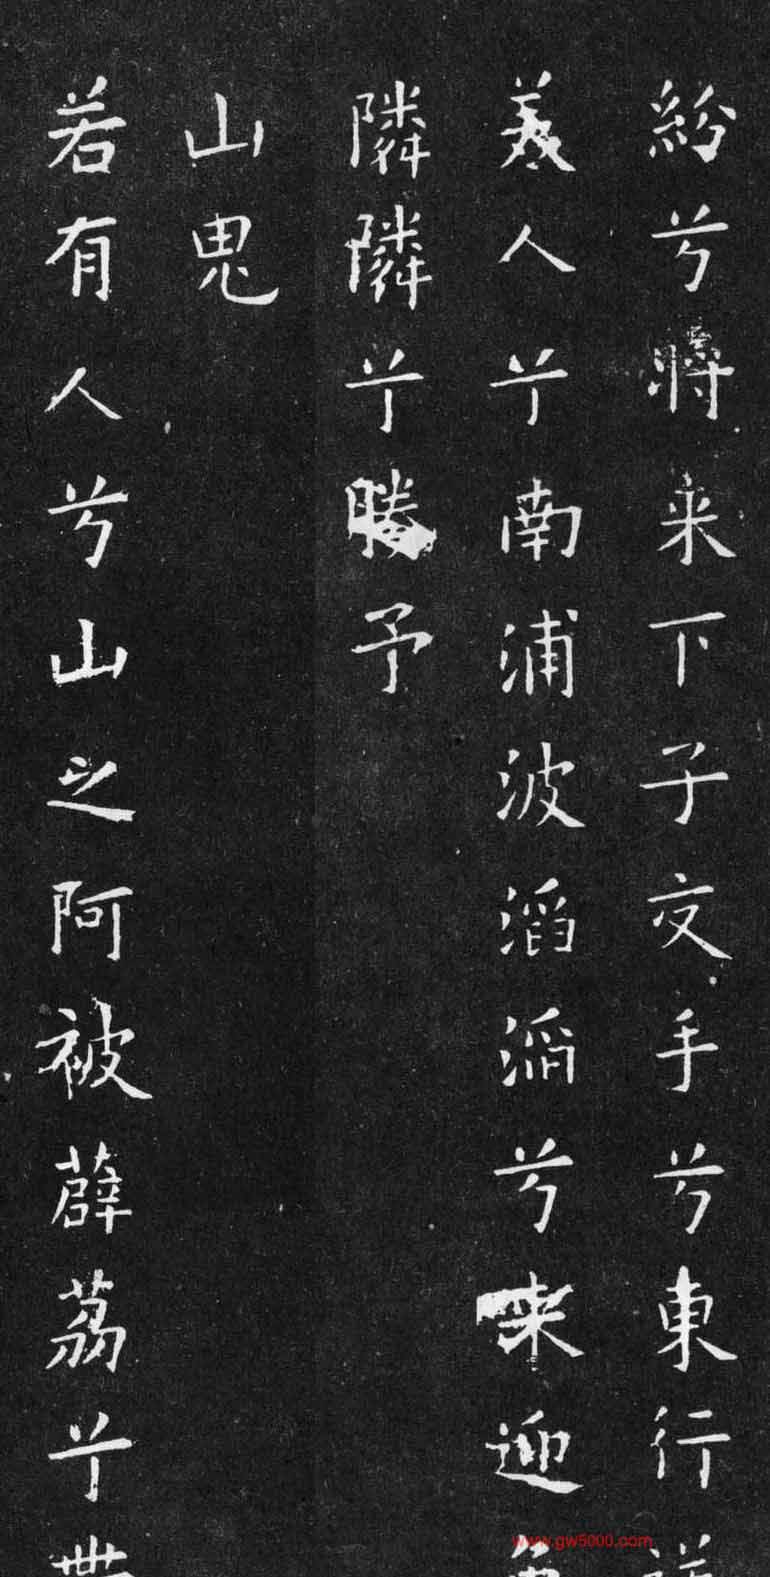 紛兮將来下子交手兮東行
美人兮南浦波滔滔兮来迎
隣隣兮媵予
山鬼
若有人兮山之阿被薜荔兮
www.gw5000.com